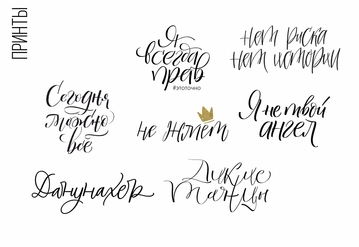 ПРИНТЫ
Я
всегда
прав
#этоточно
нет риска
нет истории
Сегодня
можно
всё
не жмет
Я не твой
ангел
Данунахер
Дикие
танцы